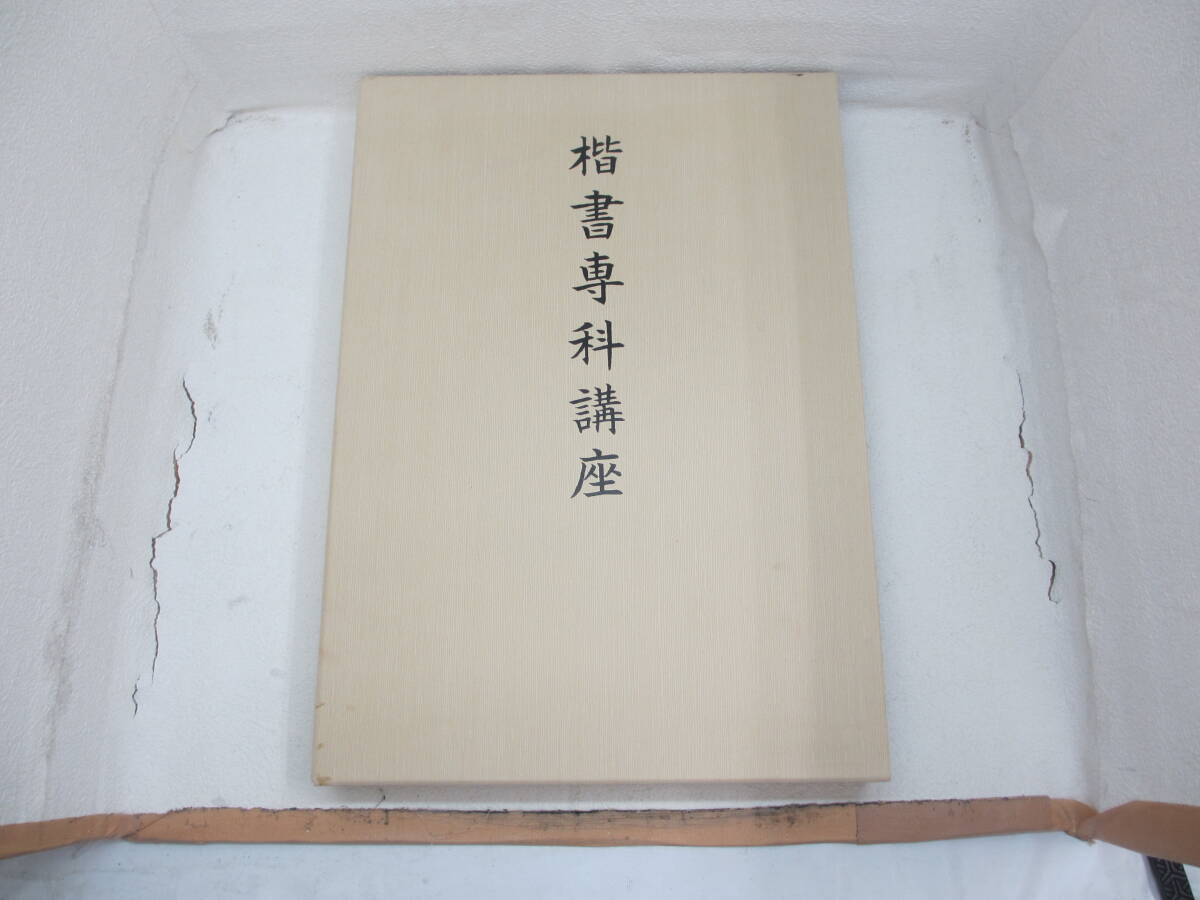 楷書専科講座